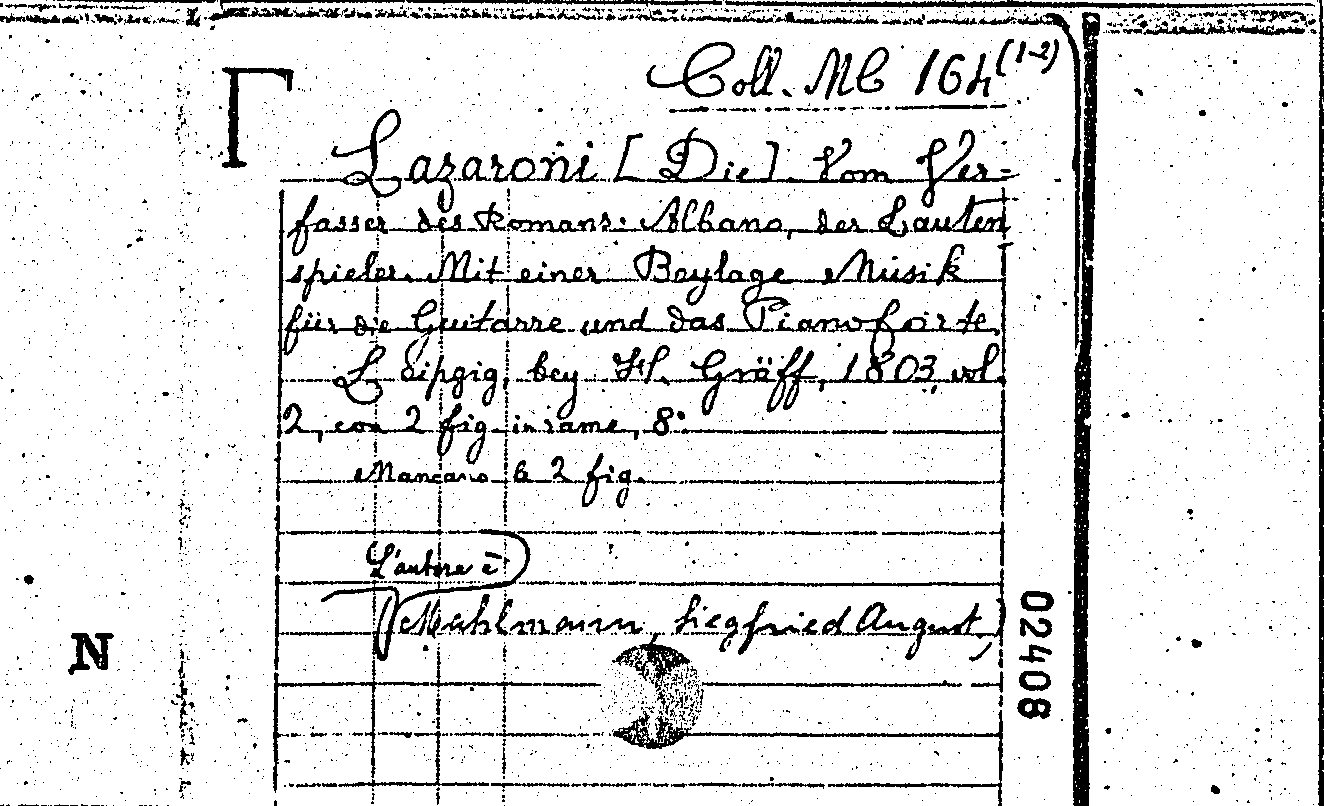 Coll. MC 164 (1-2)
Lazaroni [Die]. Vom Ver-
fasser des Romans: Albano, der Lauten
spieler. Mit einer Beylage Musik
für die Guitarre und das Pianoforte.
Leipzig, bey H. Gräff, 1803, vol.
2, con 2 fig. in rame, 8°
Mancano le 2 fig.
L'autore è
(Mahlmann, Siegfried August,)
N
02408